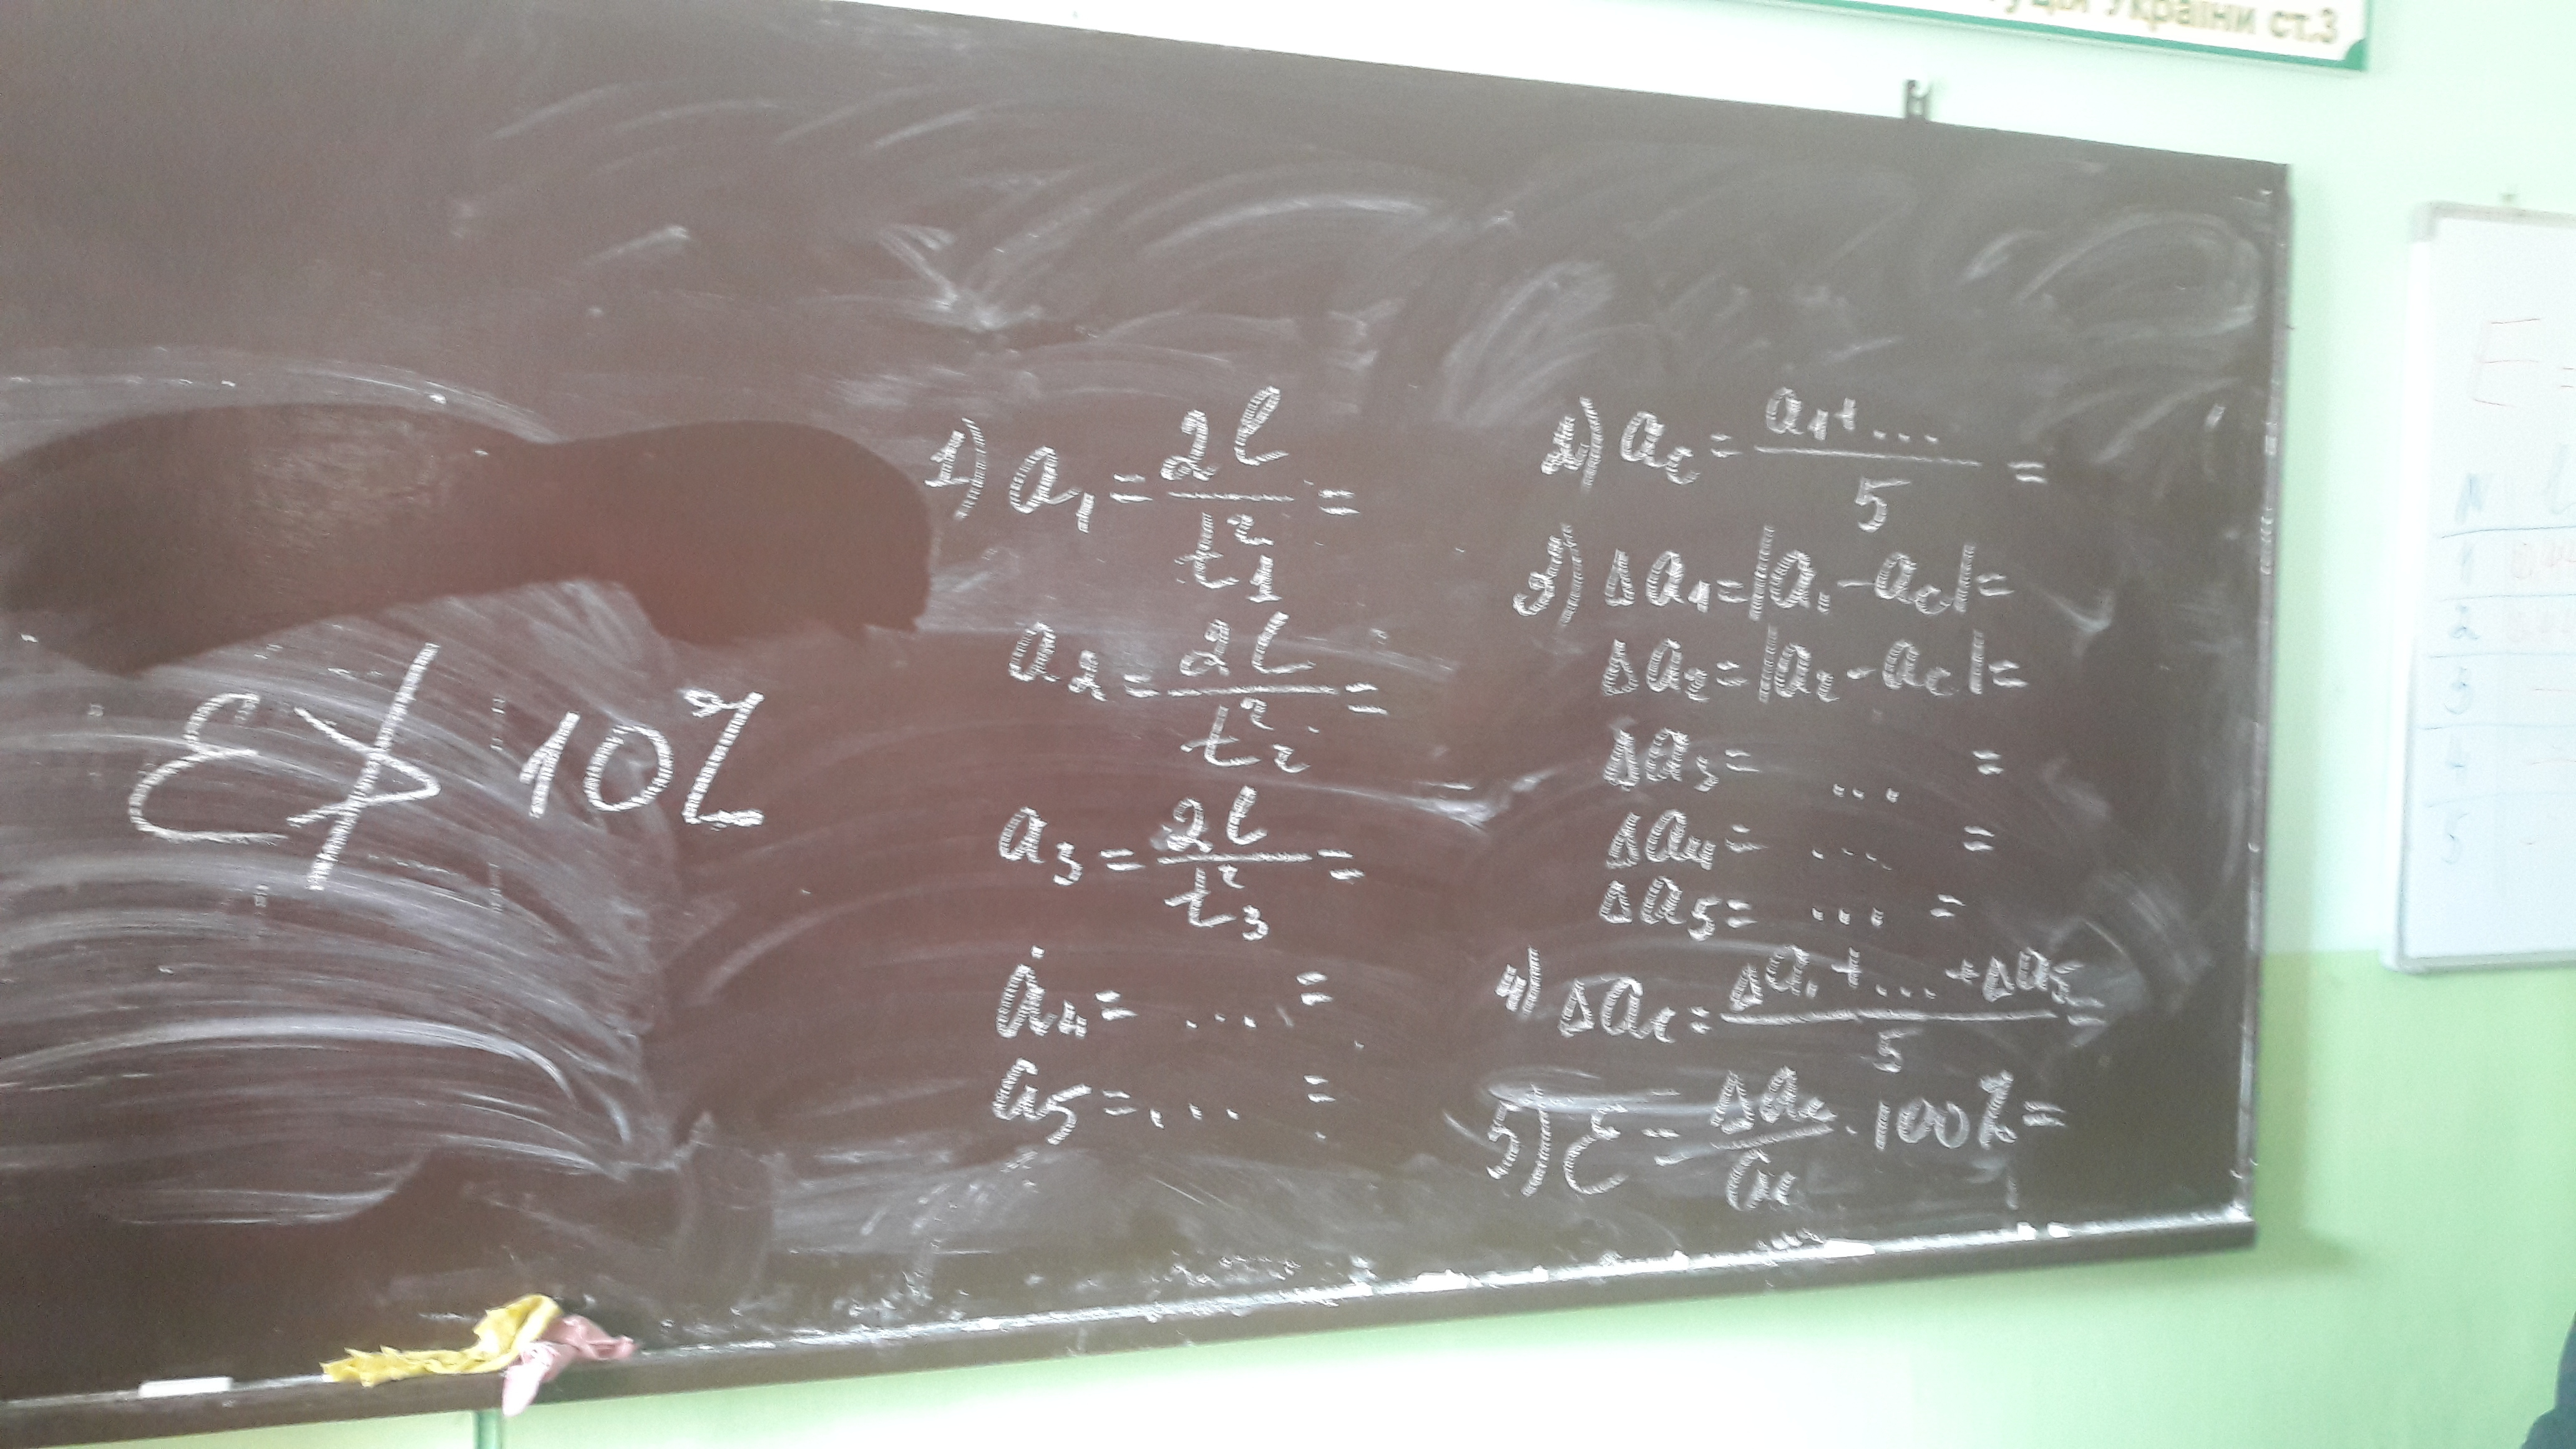 України ст.3
ε ≯ 10%
1) a₁ = 2l / t₁² =
a₂ = 2l / t₂² =
a₃ = 2l / t₃² =
a₄ = ... =
a₅ = ... =
2) ac = a₁+... / 5 =
3) Δa₁ = |a₁ - ac| =
Δa₂ = |a₂ - ac| =
Δa₃ = ... =
Δa₄ = ... =
Δa₅ = ... =
4) Δac = Δa₁ + ... + Δa₅ / 5 =
5) ε = Δac / ac · 100% =
N
1
2
3
4
5